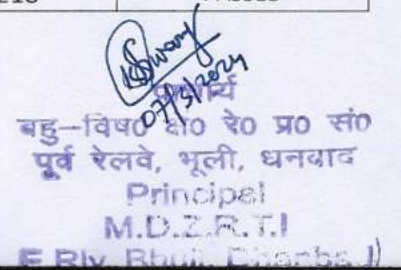 07/5/2024
प्राचार्य
बहु-विष० क्षे० रे० प्र० सं०
पूर्व रेलवे, भूली, धनबाद
Principal
M.D.Z.R.T.I
E Rly. Bhuli, Dhanbad